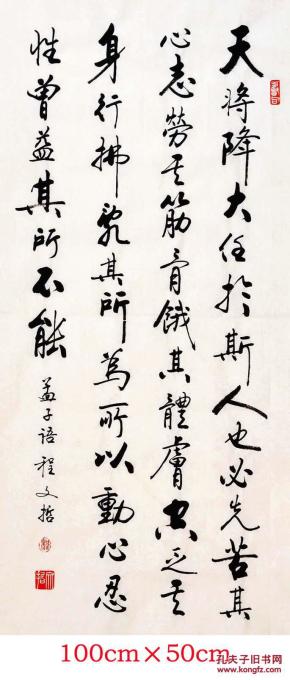 天将降大任於斯人也必先苦其
心志勞其筋骨餓其體膚空乏其
身行拂亂其所為所以動心忍
性曾益其所不能
孟子語程文哲
100cm×50cm
孔夫子旧书网